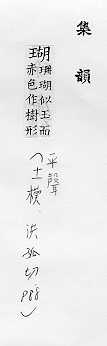 集韻
瑚
珊瑚似玉而
赤色作樹形
平聲
(十一模、洪孤切 P88)